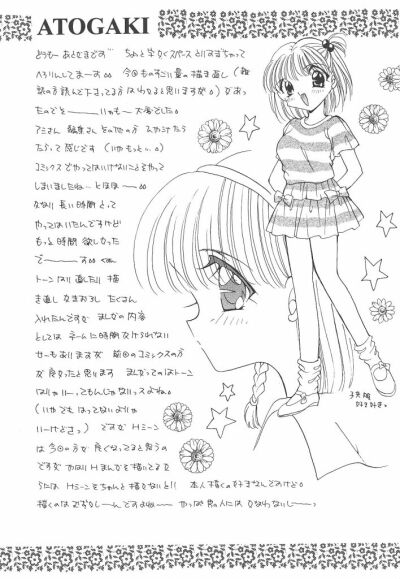 ATOGAKI
どうもー あとがきです ちょっと字かくスペース とりすぎちゃって
へろりんしてまーす。。 今回 ものすごい量の描き直し（雑
誌の方 読んで下さってる方 はわかると思いますが。）があっ
たのでそー いやもー 大変でした。
アシさん 編集さん その他の方
たらって感じです（いやもっと。。）
コミックスでやってはいけないことをやって
しまいましたね… とほほー。。
かなり 長い時間 とって
やってはいたんですけど
もっと時間 欲しかった
でーーーす。。
トーン はり 直したり 描
き直し かきおろし たくさん
入れたんですが まんがの内容
としては ネームに時間 かけられない
せーもありますが 前回のコミックスの方
が 良かったと思います まんがってのはトーン
はりゃいーってもんじゃないっスよね。
（いやでも はってないよりは
いーけどさっ） ですが Hシーン
は 今回の方が 良くなってると思うの
ですが やはり Hまんがを描いてる
らには Hシーンをちゃんと描かないと！！ 本人描くの好きなんですけど。
描くのはむずかしーんですよねー やっぱ